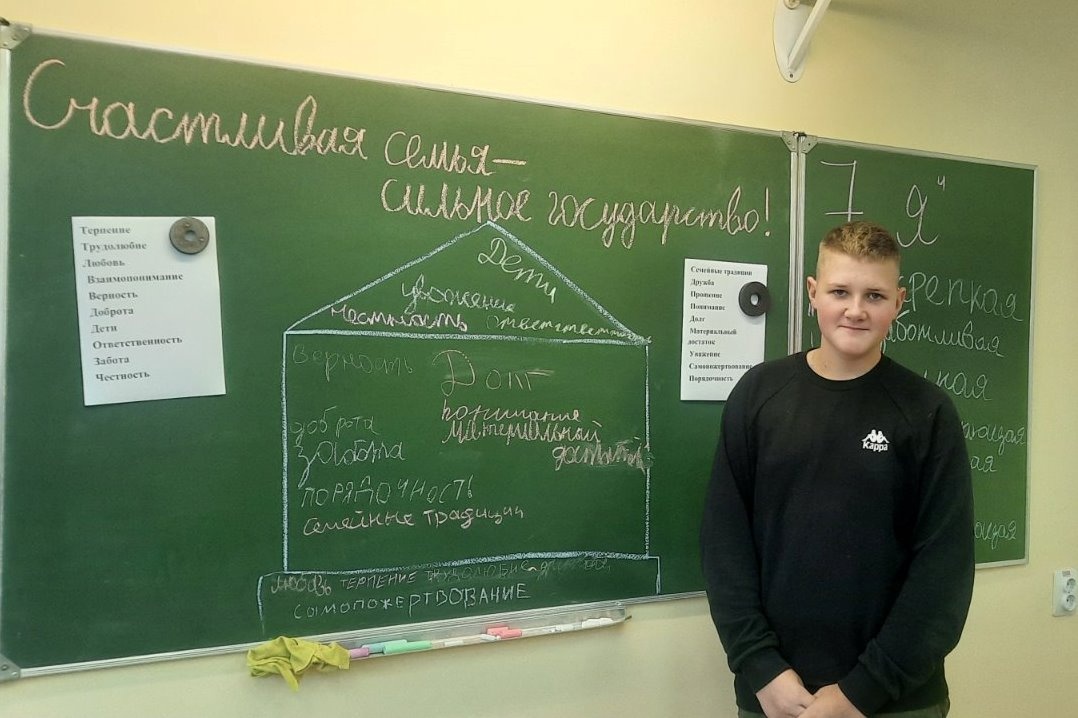 Счастливая семья—
сильное государство!
Терпение
Трудолюбие
Любовь
Взаимопонимание
Верность
Доброта
Дети
Ответственность
Забота
Честность
Дети
уважение
честность ответственн
верность Долг
доброта
понимание
забота
материальный
достаток
ПОРЯДОЧНОСТЬ
семейные традиции
любовь ТЕРПЕНИЕ ТРУДОЛЮБИЕ
СЫМОПОЖЕРТВОВАНИЕ
Семейные традиции
Дружба
Прощение
Понимание
Долг
Материальный
достаток
Уважение
Самопожертвование
Порядочность
7 я
ч
репкая
ботливая
Kappa